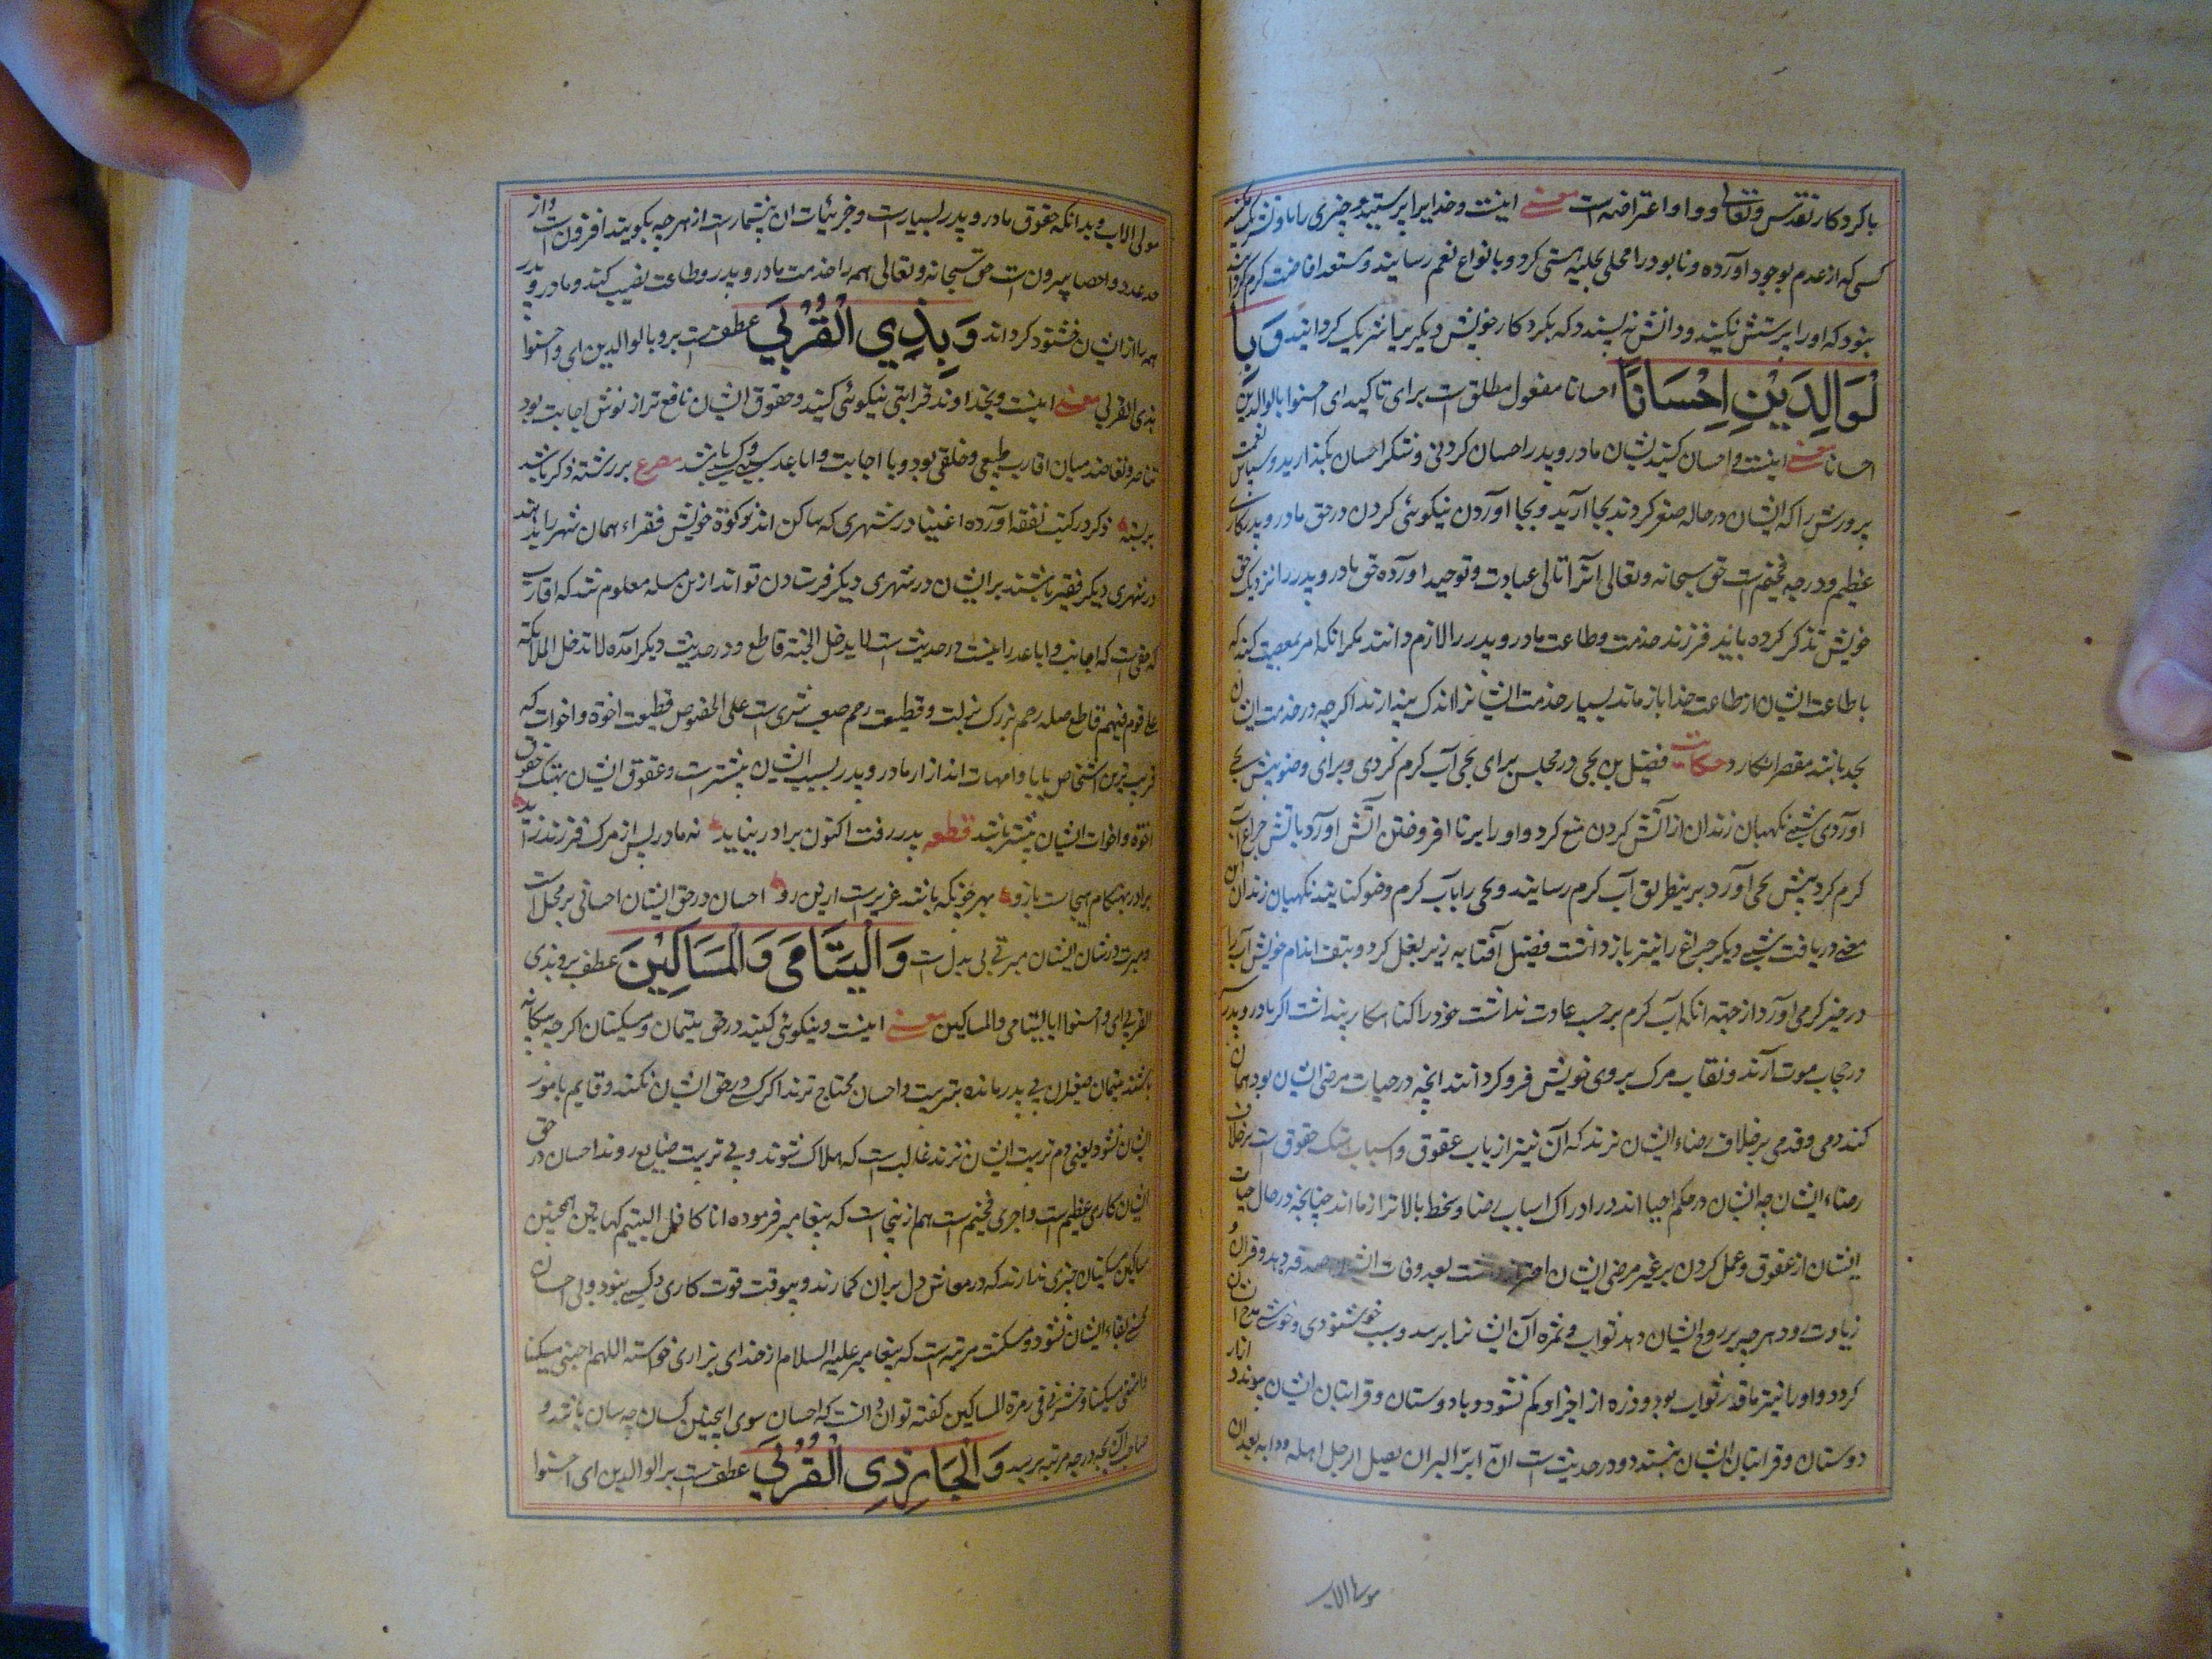 با کردکار تقدس و تعالی و واو اعتراضه است معنی اینست و خدایرا پرستید و چیزی را باو شریک مکنید
کسی که از عدم بوجود آورده و نابود را محلی بحلیه هستی کرد و بانواع نعم رسانید و مستعد افاضت کرم کردانید
بنود که او را پرستش نکنید و دانش نه پسندد که بکردکار خویش دیگر یرا شریک کردانید وَ بِا
لْوَالِدَيْنِ اِحْسَانًا احسانا مفعول مطلق است برای تاکید ای احسنوا بالوالدین
احسانا معنی اینست و احسان کنید بشان مادر و پدر احسان کردنی و شکر احسان بکذارید و سپاس نعمت
پرورش را که ایشان در حاله صغر کردند بجا آرید و بجا آوردن نیکوئی کردن در حق مادر و پدر کاری
عظیم و درجه فخیم است حق سبحانه و تعالی انرا تالی عبادت و توحید آورده حق مادر و پدر را نزدیک حق
خویش تذکر کرده باید فرزند خدمت و طاعت مادر و پدر را لازم دانند مکر انکه امر بمعصیت کنند که
با طاعت ایشان از طاعت خدا باز ماند بسیار خدمت ایشانرا اندک پندارند اگرچه در خدمت ایشان
بجد باشند مقصر انکارد حکایت فضیل بن یحیی در مجلس برای یحیی آب کرم کردی و برای وضو پیش یحیی
آوردی شبی نکهبان زندان از آتش کردن منع کرد و او را برنا افروختن آتش آورد باتش چراغ آب
کرم کرد پیش یحیی آورد برینطریق آب کرم رسانید و یحیی را بآب کرم وضو کنانید نکهبان زندان این
معنی دریافت شبی دیکر چراغ را نیز باز داشت فضیل آفتابه زیر بغل کرد و بتف اندام خویش آب را
در حیز کرمی آورد از جهة انکه آب کرم بر حسب عادت نداشت خود را کناهکار پنداشت اکر مادر و پدر
در حجاب موت آرند و نقاب مرک بروی خویش فرو کردانند انچه در حیات مرضی ایشان بود همان
کند دمی و قدمی بر خلاف رضاء ایشان نزند که آن نیز از باب عقوق و اسباب هتک حقوق است بر خلاف
رضاء ایشان چه ایشان در حکم احیا اند در ادراک اسباب رضا و سخط بالاتر از ما اند چنانچه در حال حیات
ایشان از عقوق و عمل کردن بر غیر مرضی ایشان بعد وفات ایشان صدقه دهد و قرآن
زیارت رود هرچه بر روح ایشان دهد ثواب و ثمره آن ایشانرا برسد و سبب خوشنودی و خوشی
کردد و او را نیز ماقدر ثواب بود و ذره از اجر او کم نشود و با دوستان و قرابتان ایشان پیوندد
دوستان و قرابتان ایشان بنسبتد و در حدیث است انّ ابرّ البر ان یصل الرجل اهله ود ابیه بعد ان
مولی الاب
مولی الاب و بدانکه حقوق مادر و پدر بسیار است و جزئیات ان بیشمار است از هر چه بکویند افزون است و از
حد عدد و احصا بیرون است حق سبحانه و تعالی همه را خدمت مادر و پدر و طاعت نصیب کند و مادر و پدر
همه را از ایشان خشنود کرداند وَ بِذِي الْقُرْبَي عطف است بر و بالوالدین ای و احسنوا
بذی القربی معنی اینست و بخداوند قرابتی نیکوئی کنید و حقوق ایشان
تناصر و تعاضد میان اقارب طبعی و خلقی بود و با اجانب و اباعد سببی و کسبی باشد مصرع بر رشته ذکر باشد
بربسته ذکر در کتب فقه آورده اغنیا در شهری که ساکن اند زکوة خویش فقراء همان شهر را بدهند
در شهری دیکر فقیر باشند بر ایشان در شهری دیکر فرستادن توانند ازین مسله معلوم شد که اقارب
که حقی است که اجانب و اباعد را نیست در حدیث است لا یدخل الجنة قاطع و در حدیث دیکر آمده لا تدخل الملائکة
علی قوم فیهم قاطع صله رحم بزرک و قطیعت رحم صعب شری است علی الخصوص قطیعت اخوة و اخوات که
قریب ترین اشخاص بابا و امهات اند ازار مادر و پدر بسبب ایشان بیشتر است و عقوق ایشان بهتک حقوق
اخوة و اخوات ایشان بیشتر باشد قطعه پدر رفت اکنون برادر نیاید نه مادر پس از مرک فرزند زاید
برادر بهنکام هیجاست بازو بهر خونکه باشد عزیز است ازین رو احسان در حق ایشان احسانی بر محل است
و مبرت در شان ایشان مبرتی بی بدل است وَ الْيَتَامَى وَ الْمَسَاكِيْنَ عطف بر و بذی
القربی ای و احسنوا بالیتامی و المساکین معنی اینست و نیکوئی کنید در حق یتیمان و مسکینان اکرچه بیکانه
باشند یتیمان صغیران بی پدر مانده بتربیت و احسان محتاج ترند اکر کسی در حق ایشان نکند و قایم بامور
ایشان نشود یعنی دم تربیت ایشان نزند غالب است که هلاک شوند و بی تربیت ضایع روند احسان در حق
ایشان کاری عظیم است و اجری فخیم است هم ازینجا است که پیغامبر فرموده انا کافل الیتیم کهاتین همچنین
مساکین مسکینان چیزی ندارند که در معاش دل بر ان کمارند و بیوقت قوت کاری دیکسی نبود و بی احسان
کسی بقاء ایشان نشود و مسکنت مرتبه است که پیغامبر علیه السلام از خدای بزاری خواسته اللهم احینی مسکینا
و امتنی مسکینا و احشرنی فی زمرة المساکین کفته توان دانست که احسان سوی اینچنین کسان چه سان باشد و
صاحب آن بچه درجه و مرتبه برسد وَ الْجَارِ ذِي الْقُرْبَي عطف است بر الوالدین ای احسنوا